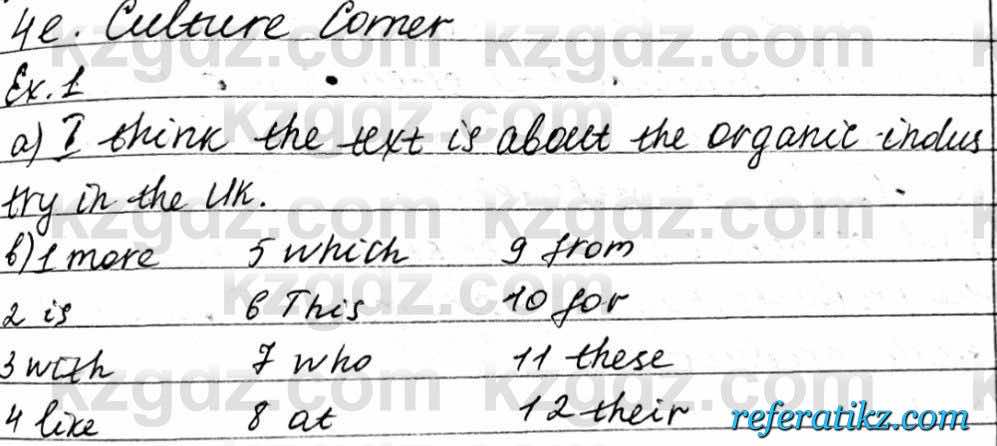 4e. Culture Corner
Ex. 1
a) I think the text is about the organic indus
try in the UK.
b) 1 more 5 which 9 from
2 is 6 This 10 for
3 with 7 who 11 these
4 like 8 at 12 their
kzgdz.com
referatikz.com